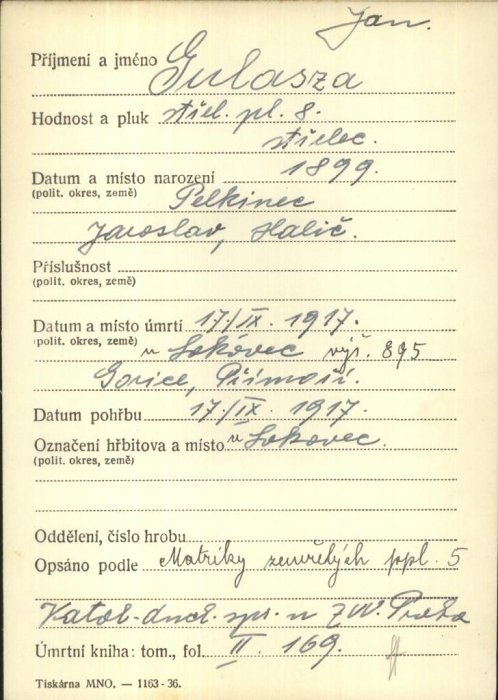 Jan.
Příjmení a jméno Gulasza
Hodnost a pluk střel. pl. 8.
střelec.
Datum a místo narození 1899.
(polit. okres, země) Pelkinec
Jaroslav, Halič.
Příslušnost
(polit. okres, země)
Datum a místo úmrtí 17./IX. 1917.
(polit. okres, země) u Lokovec výš. 895
Gorice, Přímoří.
Datum pohřbu 17/IX. 1917.
Označení hřbitova a místo u Lokovec.
(polit. okres, země)
Oddělení, číslo hrobu
Opsáno podle Matriky zemřelých ppl. 5
Katol. duch. spr. u ZVV. Praha
Úmrtní kniha: tom., fol. II. 169.
Tiskárna MNO. — 1163-36.